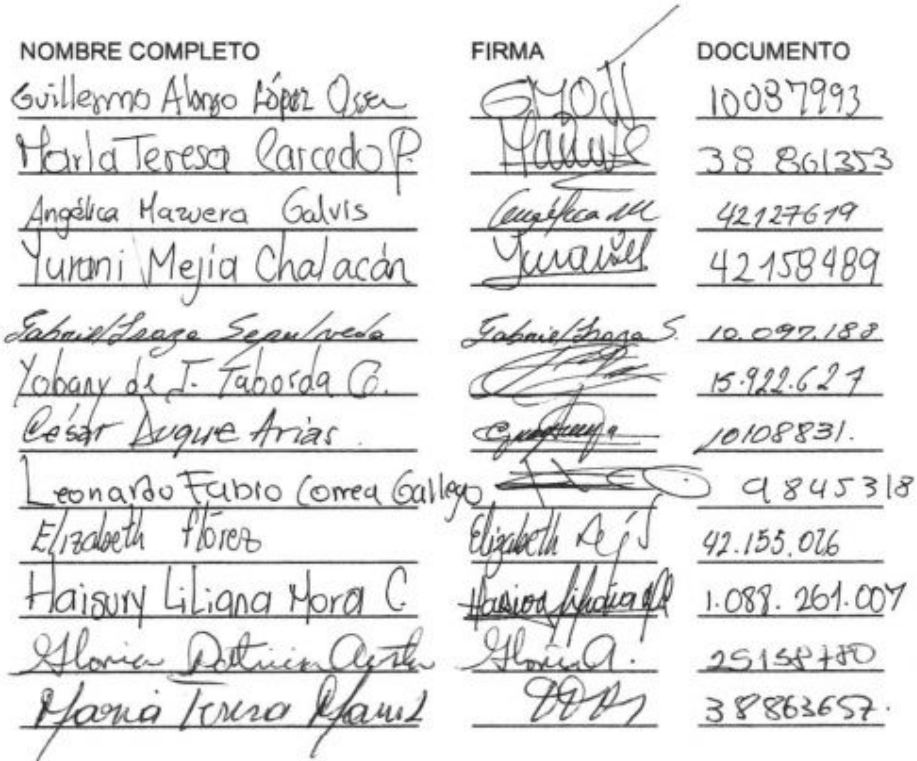 NOMBRE COMPLETO FIRMA DOCUMENTO
Guillermo Alonso López Ossa 10087993
María Teresa Carcedo P. 38 861353
Angélica Mazuera Galvis Angélica M 42127619
Yurani Mejía Chalacán Yurani 42158489
Gabriel Isaza Sepulveda Gabriel Isaza S. 10.097.188
Yobany de J. Taborda C. 15.922.627
César Duque Arias. 10108831.
Leonardo Fabio Correa Gallego 9845318
Elizabeth flórez Elizabeth 42.155.026
Haisury Liliana Mora C 1.088.261.007
Gloria Patricia Gloria A. 25158780
Maria Teresa 38863657.